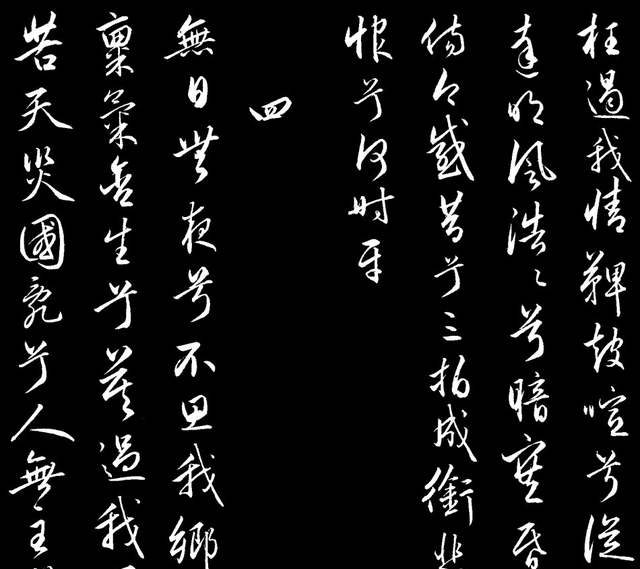 枉遏我情鼙鼓喧兮從
達明風浩浩兮暗塞昏
傷今感昔兮三拍成銜悲
恨兮何時平
四
無日無夜兮不思我鄉
稟氣含生兮莫過我
苦天災國亂兮人無主